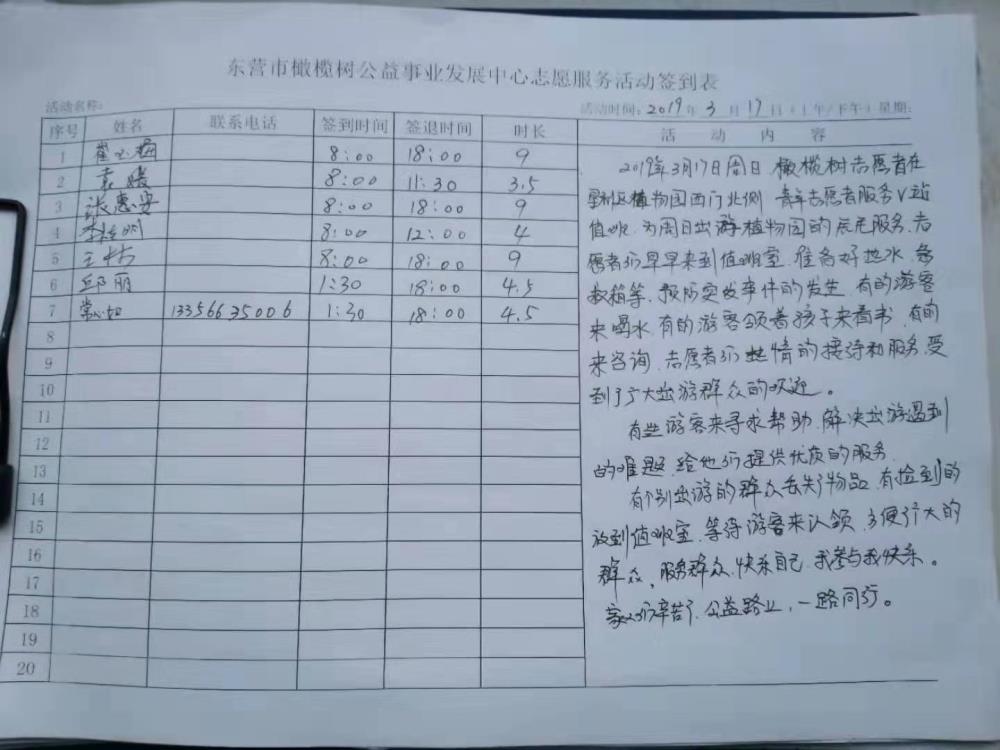 东营市橄榄树公益事业发展中心志愿服务活动签到表
活动名称: 活动时间: 2019年3月17日(上午/下午)星期:
序号 姓名 联系电话 签到时间 签退时间 时长 活动内容
1 8:00 18:00 9
2 袁媛 8:00 11:30 3.5
3 张惠安 8:00 18:00 9
4 8:00 12:00 4
5 8:00 18:00 9
6 邱丽 1:30 18:00 4.5
7 13356635006 1:30 18:00 4.5
8
9
10
11
12
13
14
15
16
17
18
19
20
2019年3月17日周日,橄榄树志愿者在
植物园西门北侧 青年志愿者服务V站
值班,为周日出游植物园的居民服务,志
愿者们早早来到值班室,准备好热水,急
救箱等,预防突发事件的发生,有的游客
来喝水,有的游客领着孩子来看书,有的
来咨询,志愿者们热情的接待和服务,受
到了广大出游群众的欢迎。
有些游客来寻求帮助,解决出游遇到
的难题,给他们提供优质的服务。
有个别出游的群众丢失了物品,有捡到的
放到值班室,等待游客来认领,方便广大的
群众,服务群众,快乐自己,我参与我快乐。
家人们辛苦了,公益路上,一路同行。